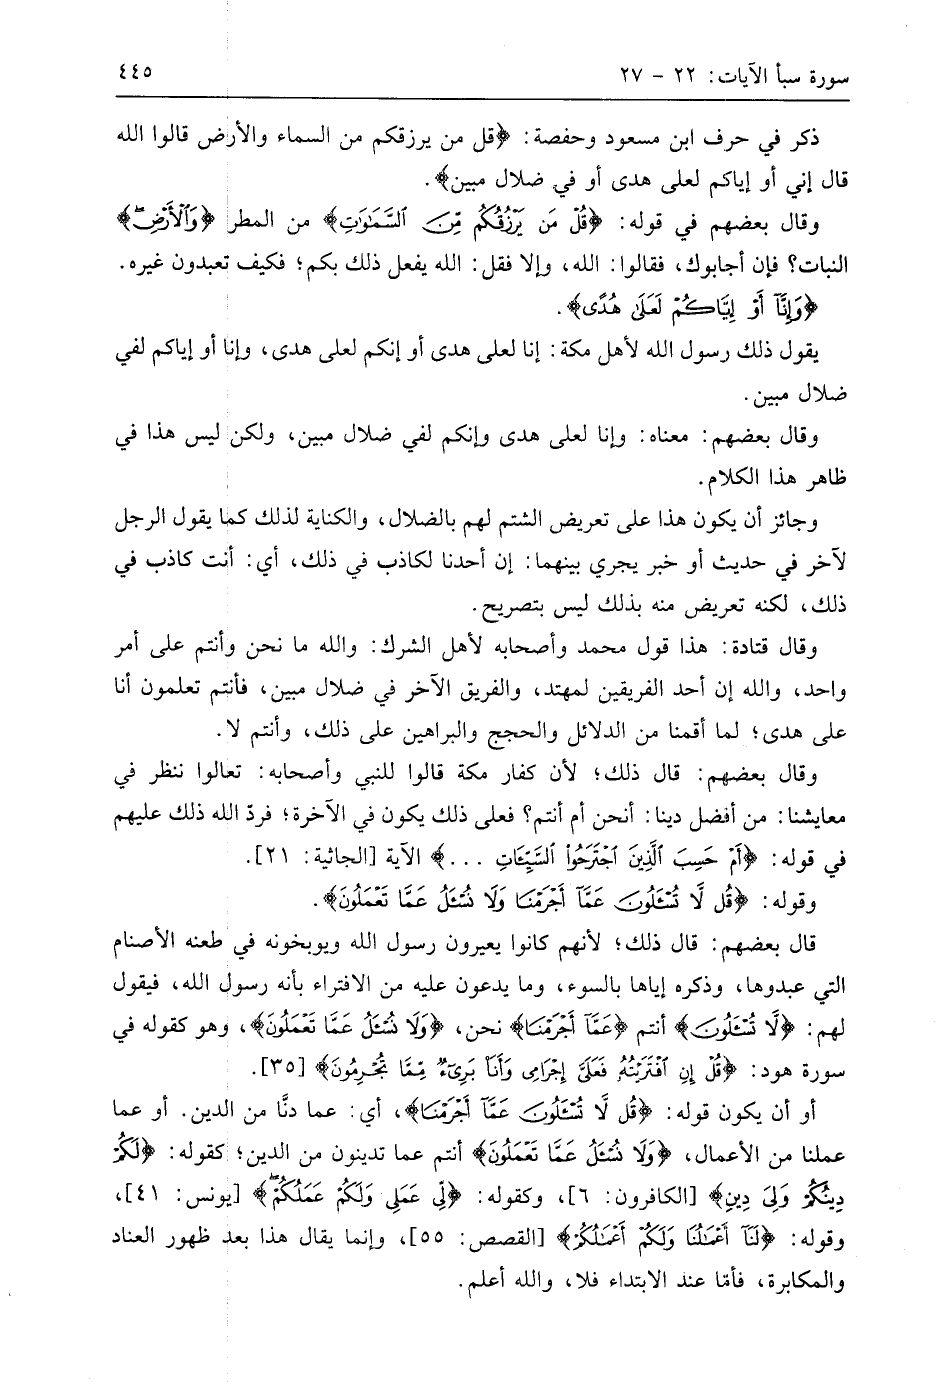 سورة سبأ الآيات: ٢٢ - ٢٧
٤٤٥
ذكر في حرف ابن مسعود وحفصة: ﴿قل من يرزقكم من السماء والأرض قالوا الله
قال إني أو إياكم لعلى هدى أو في ضلال مبين﴾.
وقال بعضهم في قوله: ﴿قُلْ مَن يَرْزُقُكُم مِّنَ ٱلسَّمَٰوَٰتِ﴾ من المطر ﴿وَٱلْأَرْضِۖ﴾
النبات؟ فإن أجابوك، فقالوا: الله، وإلا فقل: الله يفعل ذلك بكم؛ فكيف تعبدون غيره.
﴿وَإِنَّآ أَوْ إِيَّاكُمْ لَعَلَىٰ هُدًى﴾.
يقول ذلك رسول الله لأهل مكة: إنا لعلى هدى أو إنكم لعلى هدى، وإنا أو إياكم لفي
ضلال مبين.
وقال بعضهم: معناه: وإنا لعلى هدى وإنكم لفي ضلال مبين، ولكن ليس هذا في
ظاهر هذا الكلام.
وجائز أن يكون هذا على تعريض الشتم لهم بالضلال، والكناية لذلك كما يقول الرجل
لآخر في حديث أو خبر يجري بينهما: إن أحدنا لكاذب في ذلك، أي: أنت كاذب في
ذلك، لكنه تعريض منه بذلك ليس بتصريح.
وقال قتادة: هذا قول محمد وأصحابه لأهل الشرك: والله ما نحن وأنتم على أمر
واحد، والله إن أحد الفريقين لمهتد، والفريق الآخر في ضلال مبين، فأنتم تعلمون أنا
على هدى؛ لما أقمنا من الدلائل والحجج والبراهين على ذلك، وأنتم لا.
وقال بعضهم: قال ذلك؛ لأن كفار مكة قالوا للنبي وأصحابه: تعالوا ننظر في
معايشنا: من أفضل دينا: أنحن أم أنتم؟ فعلى ذلك يكون في الآخرة؛ فردّ الله ذلك عليهم
في قوله: ﴿أَمْ حَسِبَ ٱلَّذِينَ ٱجْتَرَحُوا۟ ٱلسَّيِّـَٔاتِ ...﴾ الآية [الجاثية: ٢١].
وقوله: ﴿قُل لَّا تُسْـَٔلُونَ عَمَّآ أَجْرَمْنَا وَلَا نُسْـَٔلُ عَمَّا تَعْمَلُونَ﴾.
قال بعضهم: قال ذلك؛ لأنهم كانوا يعيرون رسول الله ويوبخونه في طعنه الأصنام
التي عبدوها، وذكره إياها بالسوء، وما يدعون عليه من الافتراء بأنه رسول الله، فيقول
لهم: ﴿لَّا تُسْـَٔلُونَ﴾ أنتم ﴿عَمَّآ أَجْرَمْنَا﴾ نحن، ﴿وَلَا نُسْـَٔلُ عَمَّا تَعْمَلُونَ﴾، وهو كقوله في
سورة هود: ﴿قُلْ إِنِ ٱفْتَرَيْتُهُۥ فَعَلَىَّ إِجْرَامِى وَأَنَا۠ بَرِىٓءٌ مِّمَّا تُجْرِمُونَ﴾ [٣٥].
أو أن يكون قوله: ﴿قُل لَّا تُسْـَٔلُونَ عَمَّآ أَجْرَمْنَا﴾، أي: عما دنَّا من الدين. أو عما
عملنا من الأعمال، ﴿وَلَا نُسْـَٔلُ عَمَّا تَعْمَلُونَ﴾ أنتم عما تدينون من الدين؛ كقوله: ﴿لَكُمْ
دِينُكُمْ وَلِىَ دِينِ﴾ [الكافرون: ٦]، وكقوله: ﴿لِّى عَمَلِى وَلَكُمْ عَمَلُكُمْۖ﴾ [يونس: ٤١]،
وقوله: ﴿لَنَآ أَعْمَٰلُنَا وَلَكُمْ أَعْمَٰلُكُمْ﴾ [القصص: ٥٥]، وإنما يقال هذا بعد ظهور العناد
والمكابرة، فأمّا عند الابتداء فلا، والله أعلم.